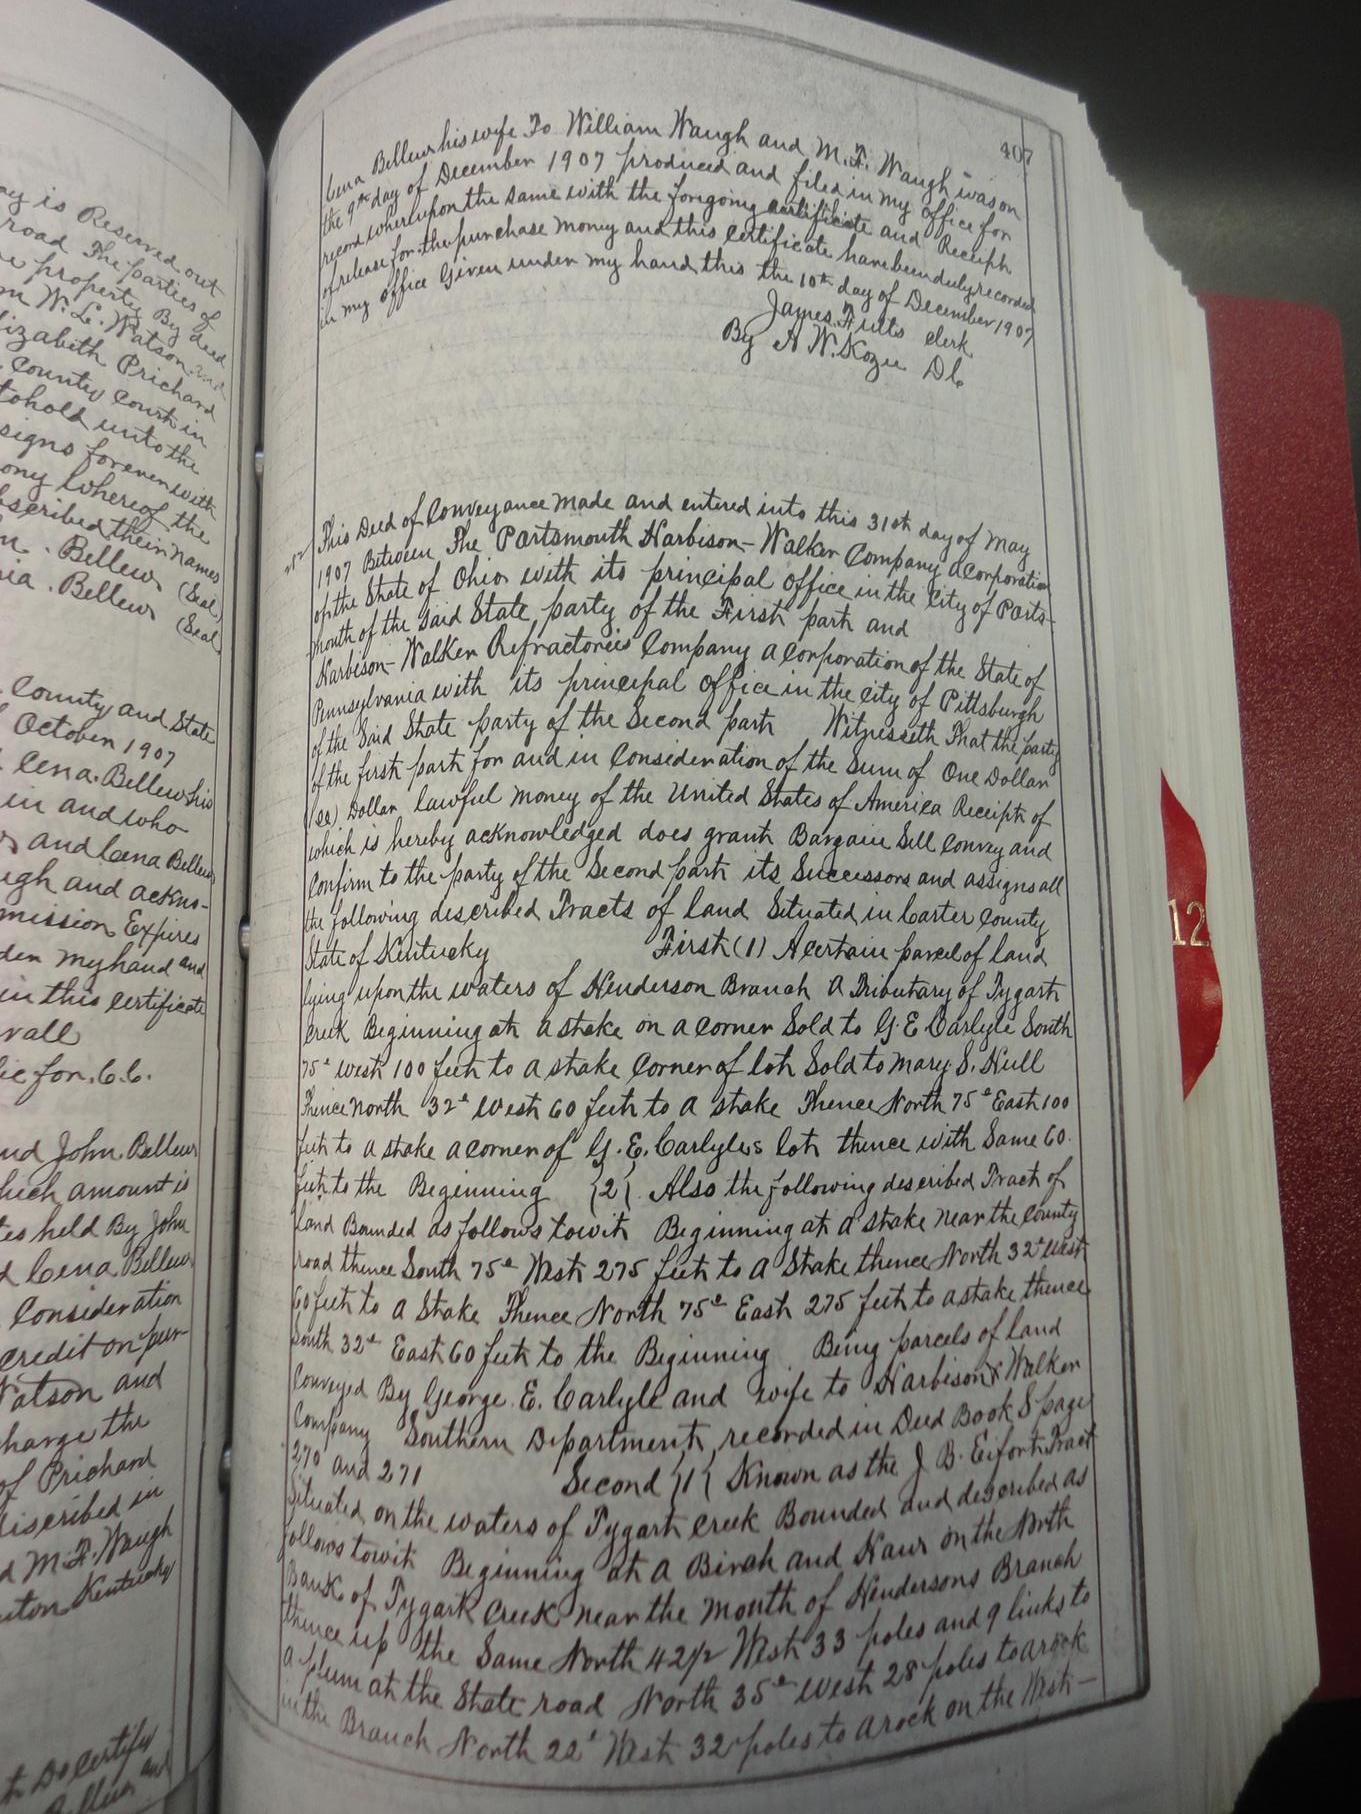 ay is Reserved out
road The parties of
e property By deed
m W. L. Watson and
lizabeth Prichard
County Court in
to hold unto the
signs forever with
ony whereof the
bscribed their names
n. Bellew (Seal)
ia. Bellew (Seal)
County and State
October 1907
Cena. Bellew his
in and who
and Cena Bellew
ugh and ackno-
mission Expires
der my hand and
in this certificate
vall
ic for. C.C.
nd John. Bellew
hich amount is
tes held By John
d Cena Bellew
Consideration
credit on pur
Watson and
charge the
of Prichard
discribed in
d M.F. Waugh
nton Kentucky
t Do certify
Bellew and
407
Cena Bellew his wife To William Waugh and M. F. Waugh was on
the 9th day of December 1907 produced and filed in my office for
record whereupon the same with the forgoing certificate and Receipt
of release for the purchase money and this certificate have been duly recorded
in my office Given under my hand this the 10th day of December 1907
James Fults clerk
By H W. Kozee Dc
This Deed of Conveyance made and entered into this 31st day of May
1907 Between The Portsmouth Harbison-Walker Company a corporation
of the State of Ohio with its principal office in the City of Ports-
mouth of the said State party of the First part and
Harbison-Walker Refractories Company a corporation of the State of
Pennsylvania with its principal office in the city of Pittsburgh
of the Said State party of the Second part Witnesseth That the party
of the first part for and in Consideration of the Sum of One Dollar
Dollar lawful money of the United States of America Receipt of
which is hereby acknowledged does grant Bargain Sell Convey and
Confirm to the party of the Second part its Successors and assigns all
the following described Tracts of land Situated in Carter County
State of Kentucky First (1) A certain parcel of land
lying upon the waters of Henderson Branch A Tributary of Tygart
Creek Beginning at a stake on a corner Sold to G. E Carlyle South
75° west 100 feet to a stake Corner of lot Sold to Mary S. Hull
Thence North 32° West 60 feet to a stake Thence North 75° East 100
feet to a stake a corner of G. E. Carlyles lot thence with Same 60
feet to the Beginning {2}. Also the following described Tract of
land Bounded as follows towit Beginning at a stake near the County
road thence South 75° West 275 feet to a Stake thence North 32° West
60 feet to a Stake Thence North 75° East 275 feet to a stake thence
South 32° East 60 feet to the Beginning. Being parcels of land
Conveyed By George. E. Carlyle and wife to Harbison & Walker
Company Southern Department, recorded in Deed Book 8 page
270 and 271 Second {1} Known as the J B. Eifort Tract
Situated on the waters of Tygart creek Bounded and described as
follows towit Beginning at a Birch and Haw on the North
Bank of Tygart Creek near the mouth of Hendersons Branch
thence up the Same North 42 1/2 West 33 poles and 9 links to
a plum at the State road North 35° West 28 poles to a rock
in the Branch North 22° West 32 poles to a rock on the West-
12